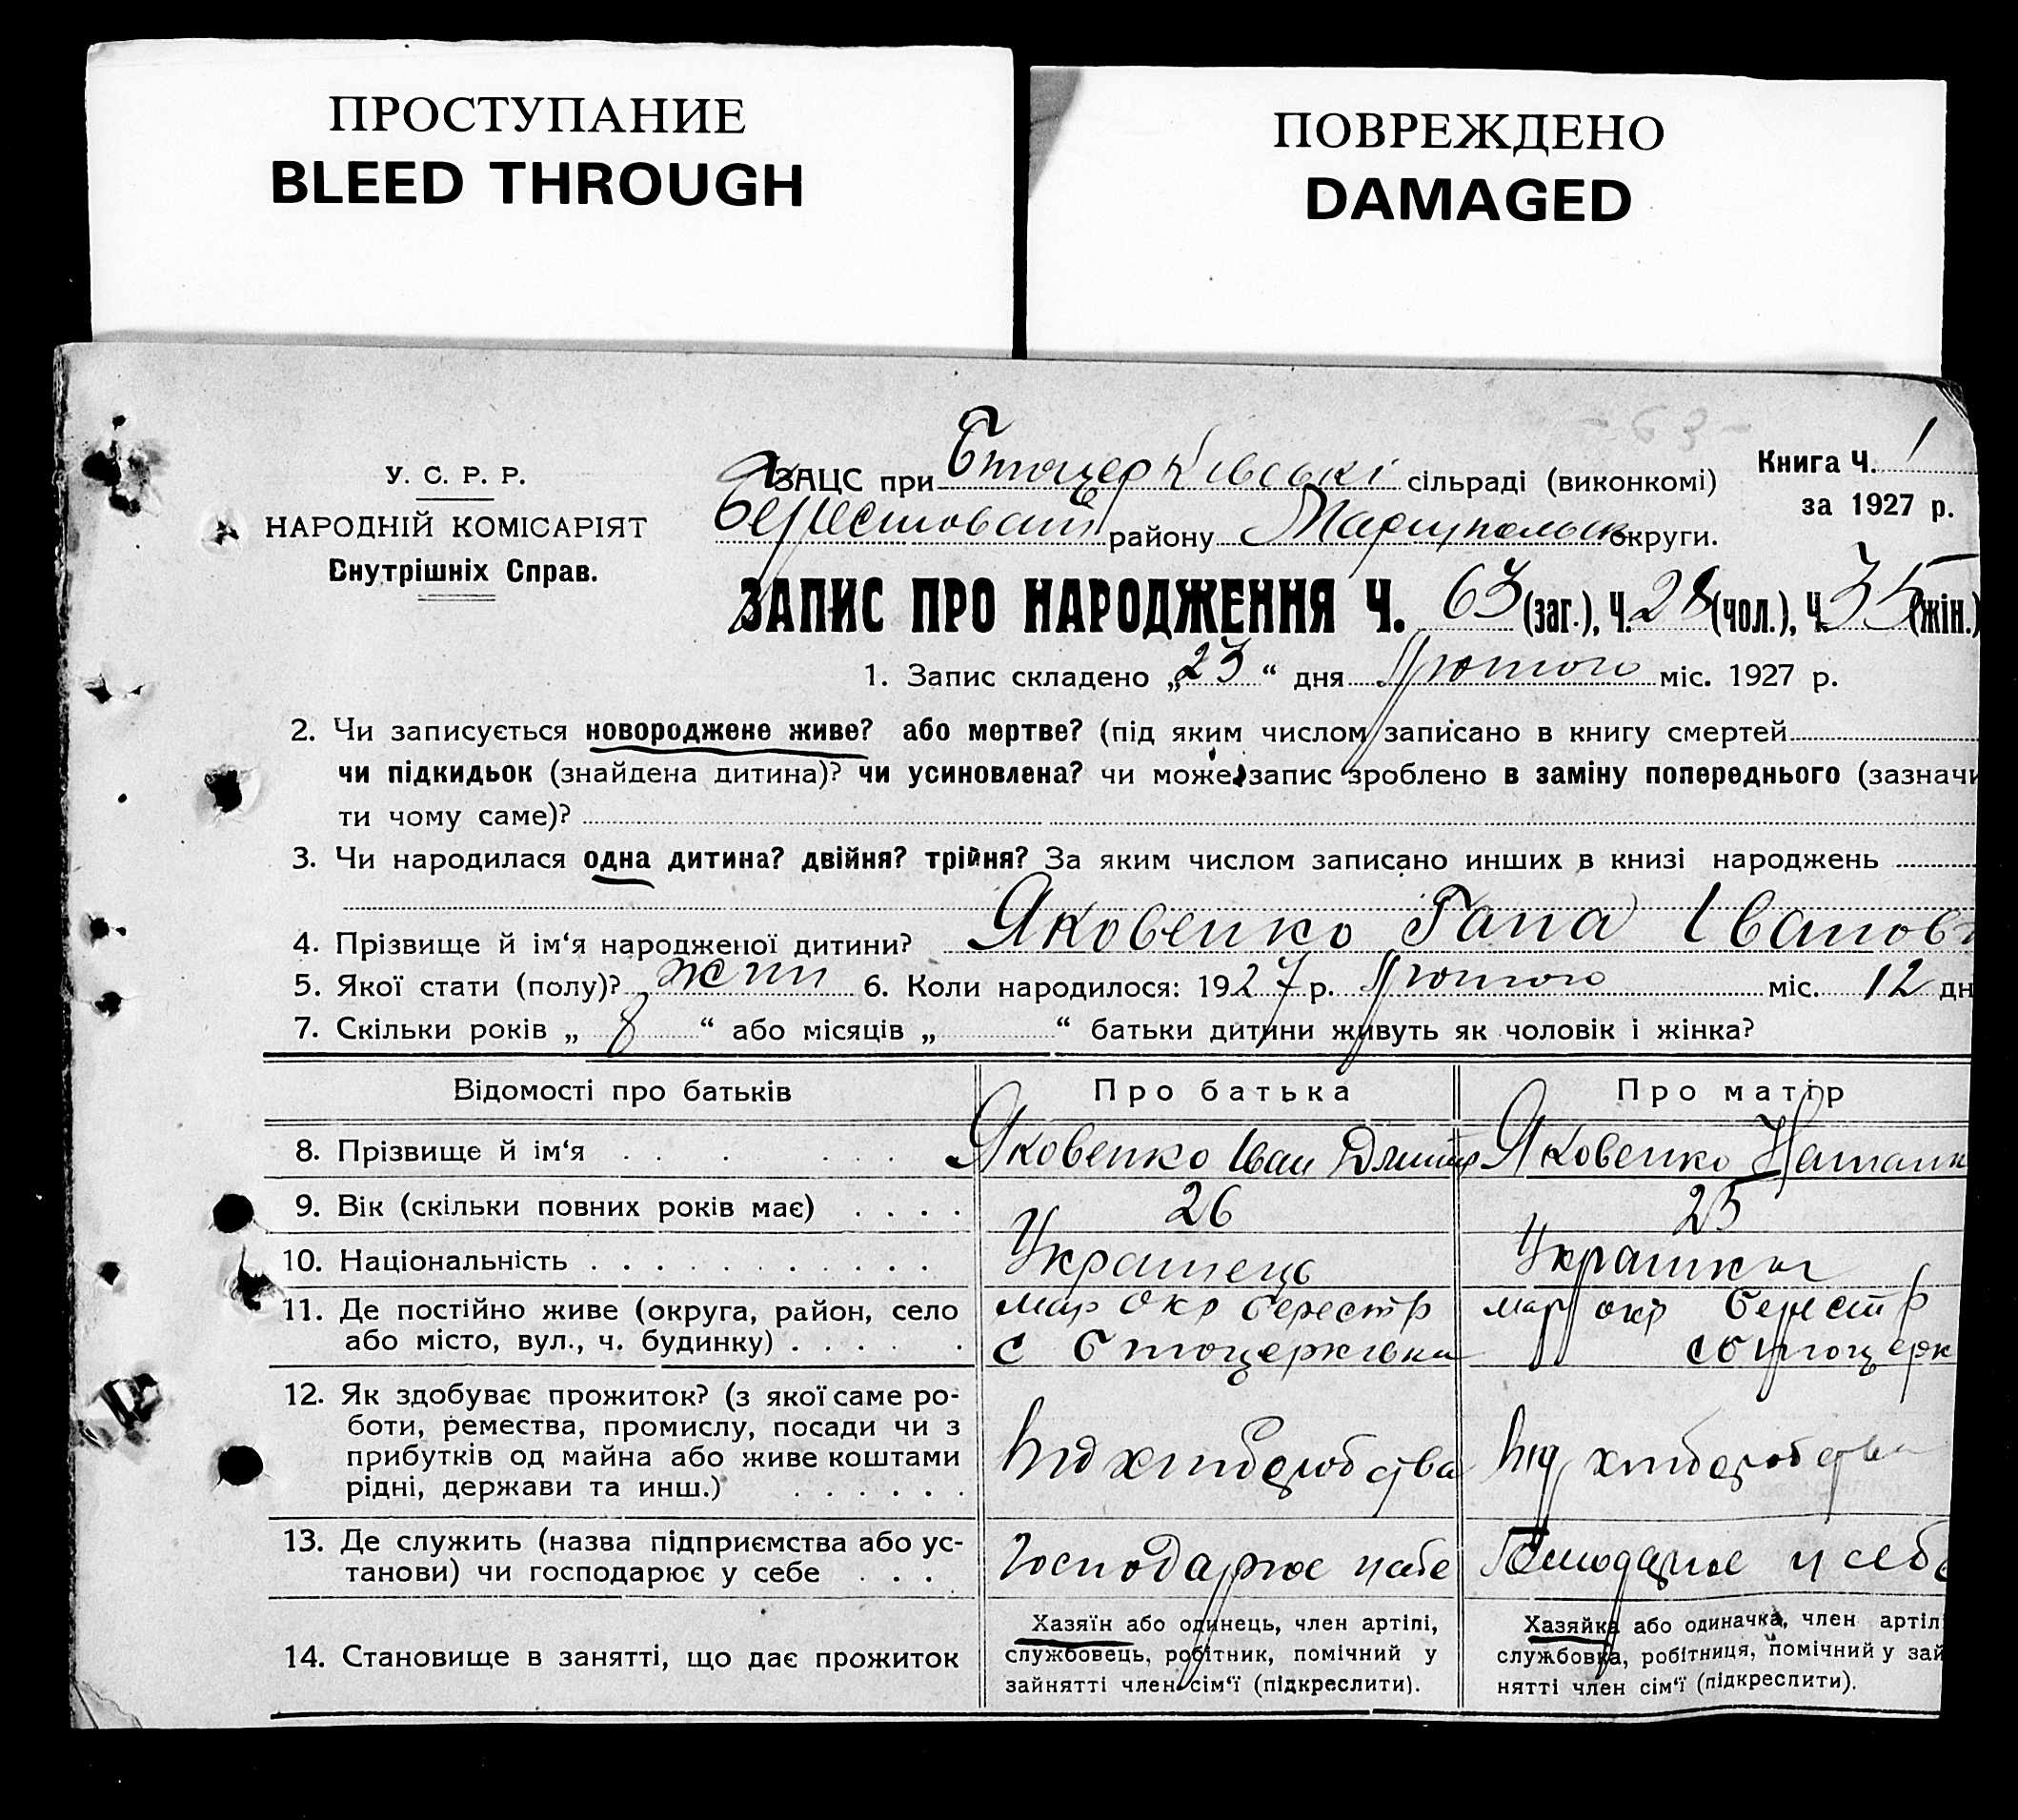 ПРОСТУПАНИЕ
BLEED THROUGH
ПОВРЕЖДЕНО
DAMAGED
- 63 -
У. С. Р. Р.
НАРОДНІЙ КОМІСАРІЯТ
Внутрішніх Справ.
ЗАЦС при сільраді (виконкомі)
району Маріупольськ округи.
Книга Ч. 1
за 1927 р.
ЗАПИС ПРО НАРОДЖЕННЯ Ч. 63 (заг.), Ч. 28 (чол.), Ч. 35 (жін.)
1. Запис складено „ 23 “ дня лютого міс. 1927 р.
2. Чи записується новороджене живе? або мертве? (під яким числом записано в книгу смертей
чи підкидьок (знайдена дитина)? чи усиновлена? чи може запис зроблено в заміну попереднього (зазначи
ти чому саме)?
3. Чи народилася одна дитина? двійня? трійня? За яким числом записано инших в книзі народжень
4. Прізвище й ім‘я народженої дитини? Яковенко Гана Іванов
5. Якої стати (полу)? жін 6. Коли народилося: 1927 р. лютого міс. 12 дн
7. Скільки років „ 8 “ або місяців „ “ батьки дитини живуть як чоловік і жінка?
Відомості про батьків Про батька Про матір
8. Прізвище й ім‘я Яковенко Іван Дмитр Яковенко Наталк
9. Вік (скільки повних років має) 26 25
10. Національність Українець Українка
11. Де постійно живе (округа, район, село мар окр берест р мар окр берест р
або місто, вул., ч. будинку) с
12. Як здобуває прожиток? (з якої саме ро-
боти, ремества, промислу, посади чи з
прибутків од майна або живе коштами
рідні, держави та инш.) від хліборобства від хліборобства
13. Де служить (назва підприємства або ус-
танови) чи господарює у себе Господарює у себе Господарює у себе
14. Становище в занятті, що дає прожиток
Хазяїн або одинець, член артілі,
службовець, робітник, помічний у
зайнятті член сім‘ї (підкреслити).
Хазяйка або одиначка, член артіл
службовка, робітниця, помічний у зай
нятті член сім‘ї (підкреслити).